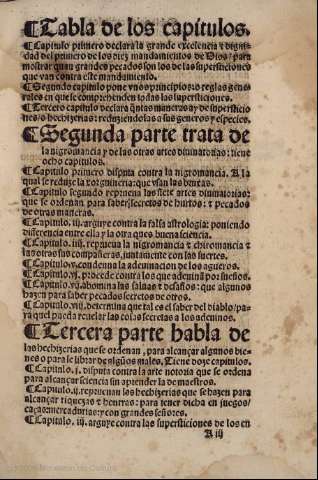 ¶Tabla de los capitulos.
¶Capitulo primero declara la grande excelencia y digni-
dad del primero de los diez mandamientos de Dios/para
mostrar quan grandes pecados son los de las supersticiones
que van contra este mandamiento.
¶Segundo capitulo pone vnos principios: o reglas gene-
rales en que se comprehenden todas las supersticiones.
¶Tercero capitulo declara q̃ntas maneras ay de supersticio
nes/o hechizerias: reduziendolas a sus generos y especies.
¶Segunda parte trata de
la nigromancia y de las otras artes diuinatorias: tiene
ocho capitulos.
¶Capitulo primero disputa contra la nigromancia. A la
qual se reduze la xorguineria: que vsan las bruxas.
¶Capitulo segundo reprueua las siete artes diuinatorias:
que se ordenan para saber secretos de hurtos: y pecados
de otras maneras.
¶Capitulo. iij. arguye contra la falsa astrologia: poniendo
diferencia entre ella y la otra ques buena sciencia.
¶Capitulo. iiij. reprueua la nigromancia y chiromancia y
las otras sus compañeras, juntamente con las suertes.
¶Capitulo v. condena la adeuinacion de los agueros.
¶Capitulo. vj. procede contra los que adeuinã por sueños.
¶Capitulo. vij. abomina las saluas y desafios: que algunos
hazen para saber pecados secretos de otros.
¶Capitulo. viij. determina que tal es el saber del diablo/pa-
ra que el pueda reuelar las cosas secretas a los ademinos.
¶Tercera parte habla de
las hechizerias que se ordenan, para alcançar algunos bie-
nes o para se librar de algũos males. Tiene doze capitulos.
¶Capitulo. j. disputa contra la arte notoria que se ordena
para alcançar sciencia sin aprender la de maestros.
¶Capitulo. ij. reprueuan las hechizerias que se hazen para
alcançar riquezas y honrras: para tener dicha en juegos/
caças mercadurias: y con grandes señores.
¶Capitulo. iij. arguye contra las supersticiones de los en
A iij